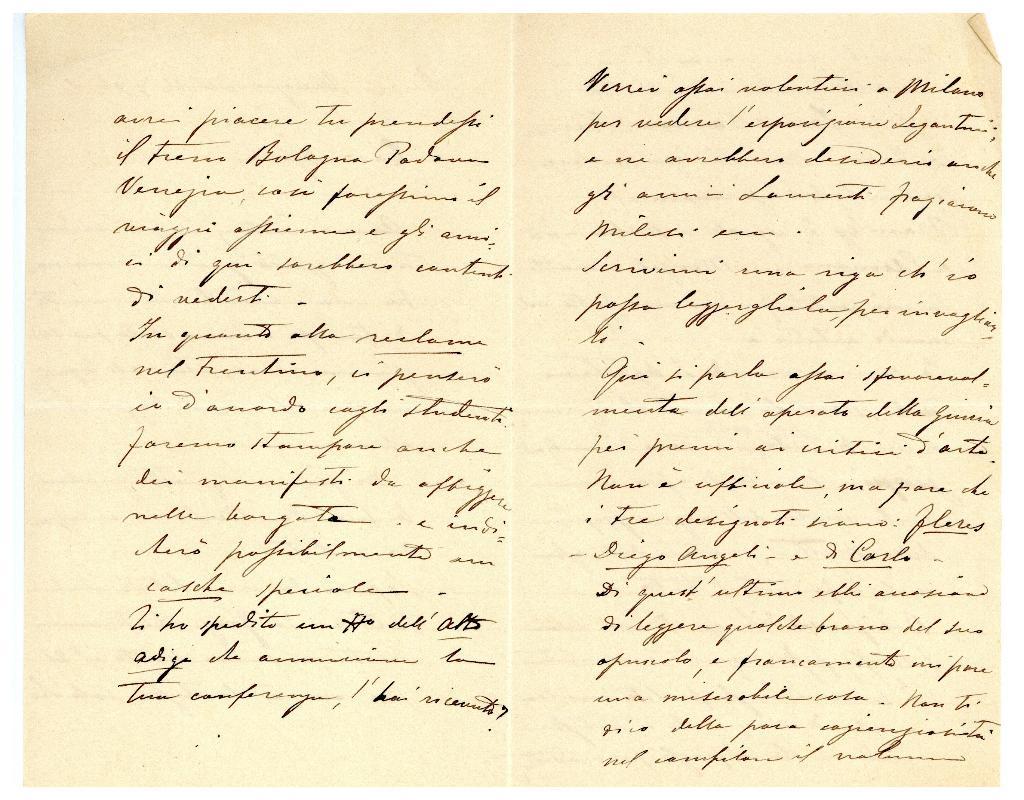 avrei piacere tu prendessi
il treno Bologna Padova
Venezia, così faressimo il
viaggio assieme e gli ami=
ci di qui sarebbero contenti
di vederti -
In quanto alla reclame
nel Trentino, ci penserò
io d'accordo cogli studenti.
faremo stampare anche
dei manifesti da affiggere
nelle borgate. e indi=
cherò possibilmente un
speciale -
Ti ho spedito un No dell'Alto
adige che annunciava la
tua conferenza, l'hai ricevuto?
Verrei assai volentieri a Milano
per vedere l'esposizione Segantini,
e ne avrebbero desiderio anche
gli amici Laurenti
Mileti ecc.
Scrivimi una riga ch'io
possa leggergliela, per invogliar=
li.
Qui si parla assai sfavoreval=
mente dell'operato della Giuria
pei premi ai critici d'arte.
Non è ufficiale, ma pare che
i tre designati siano: Fleres
- Diego Angeli - e di Carlo -
Di quest'ultimo ebbi occasione
di leggere qualche brano del suo
opuscolo, e francamente mi pare
una miserabile cosa. Non ti
dico della poca coscienziosità
nel compilare il volume